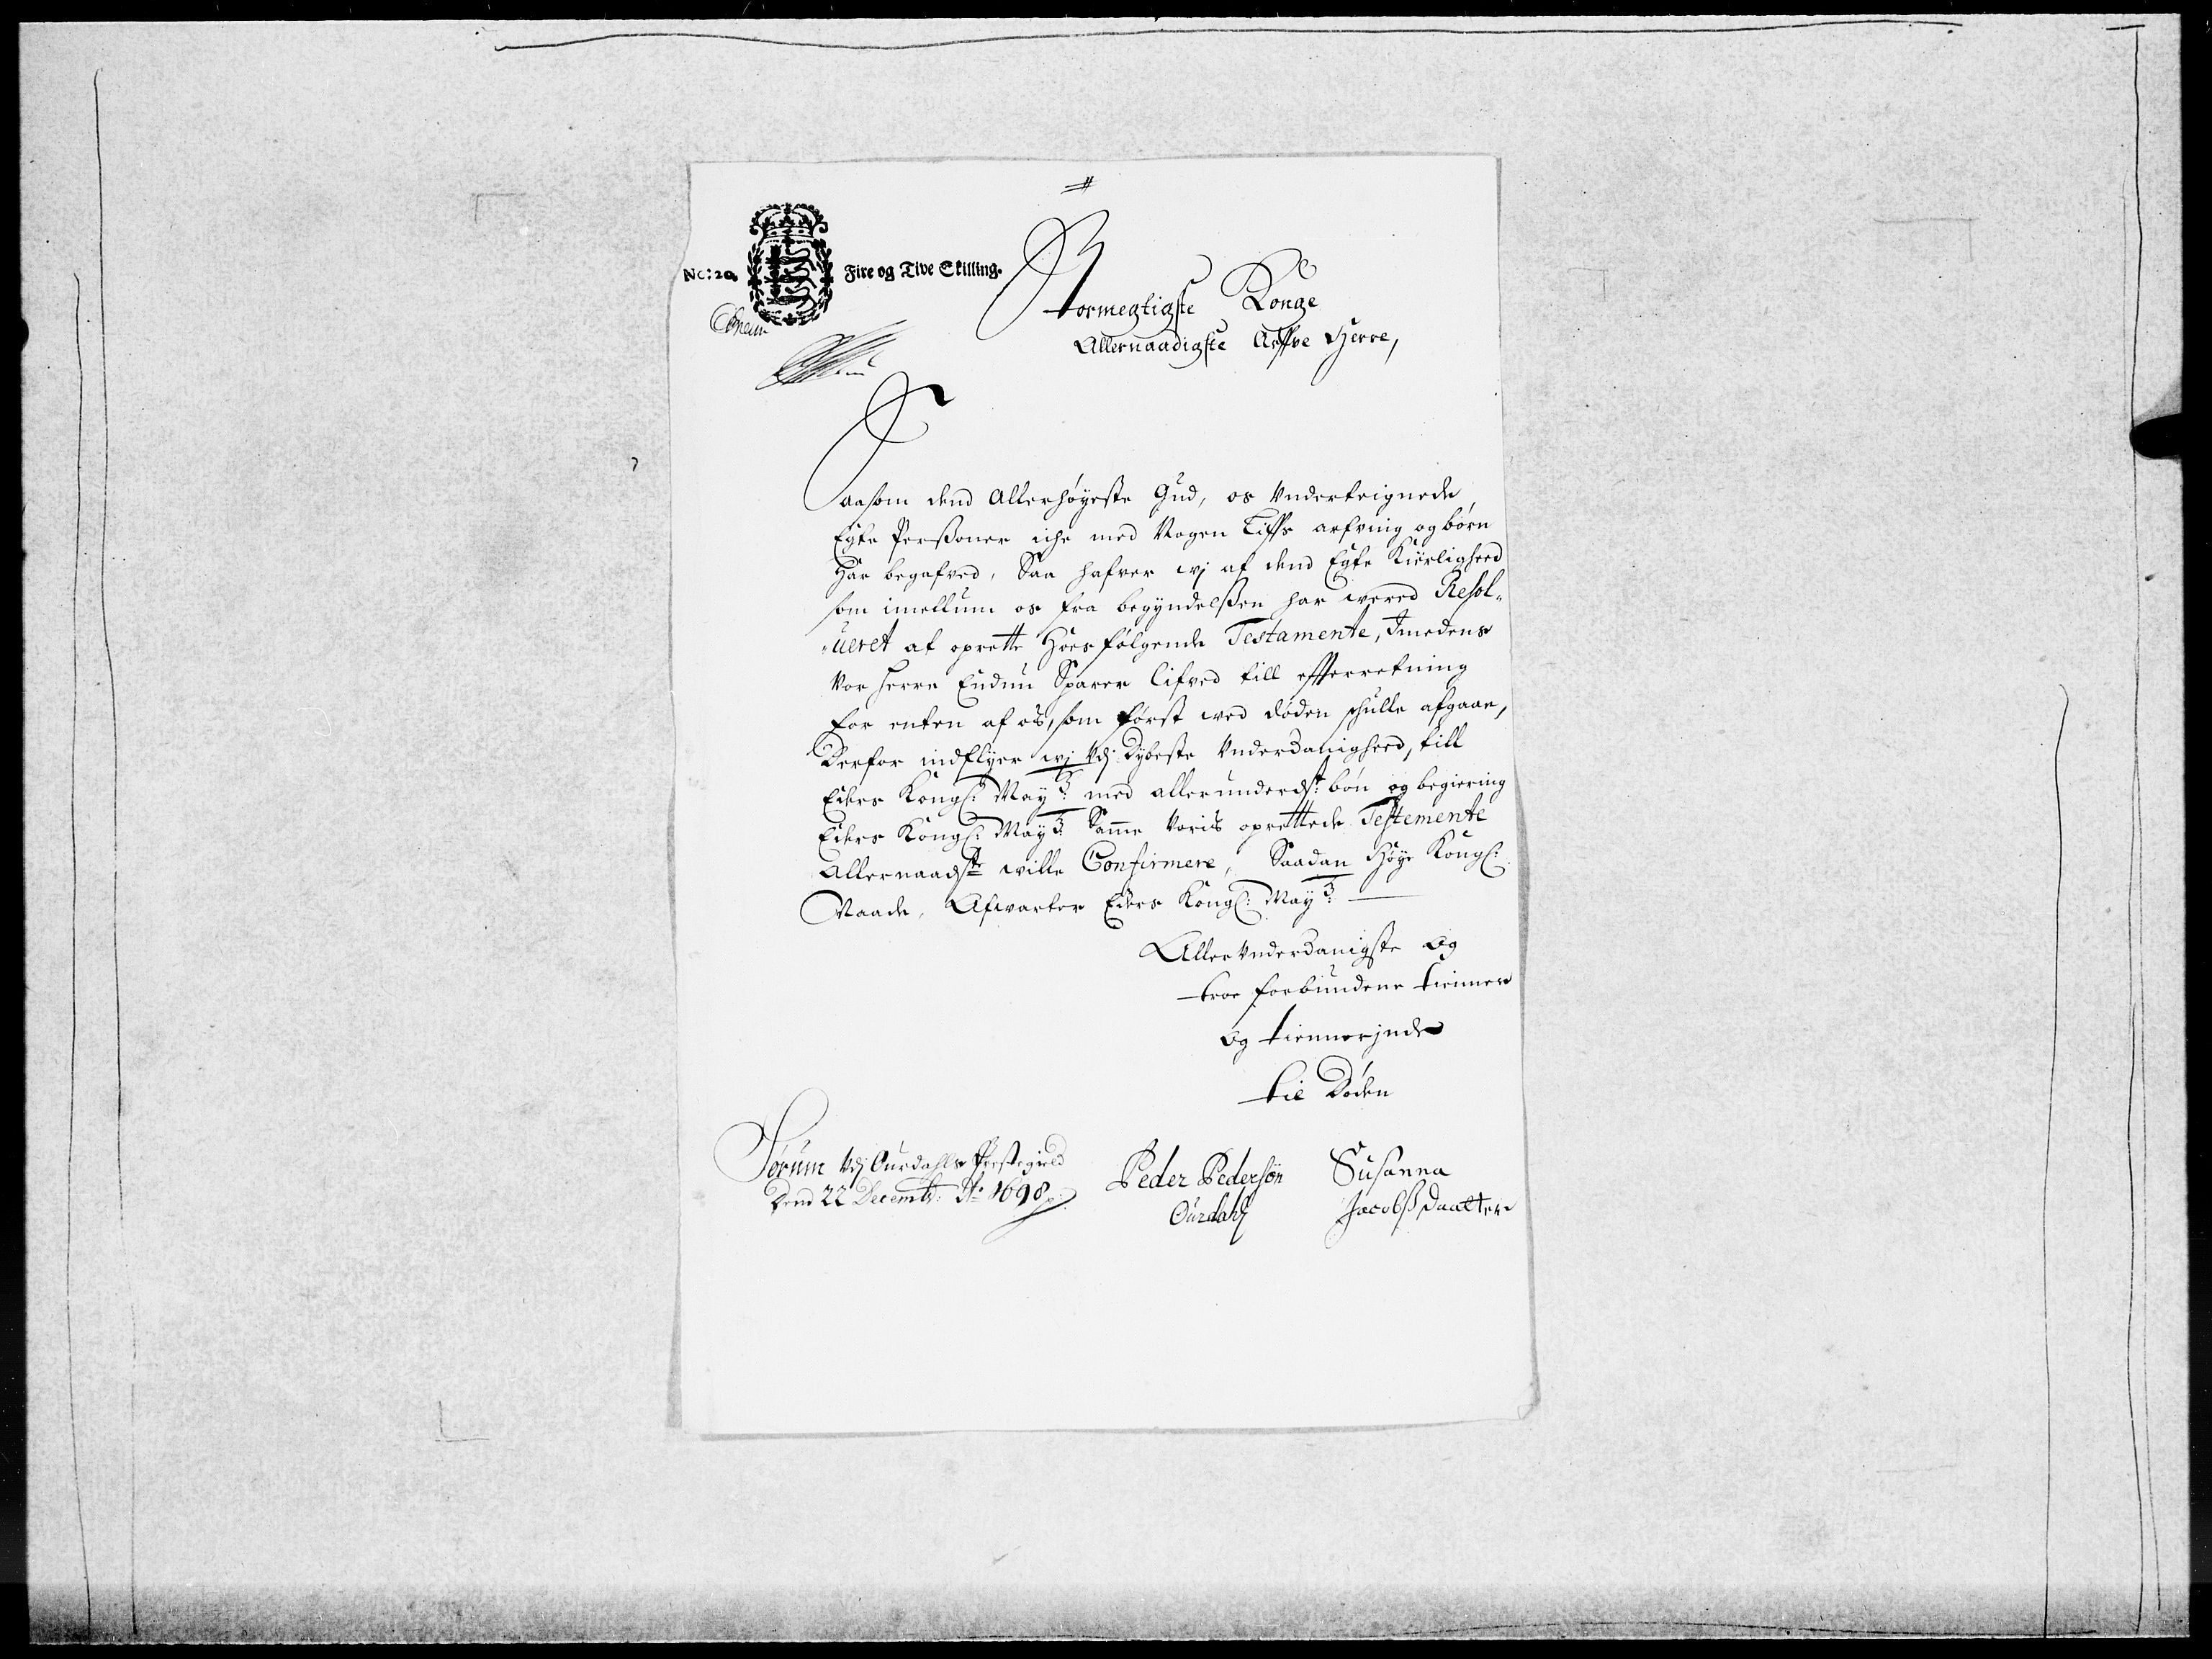 No: 20. Fire og Tive Skilling.
Stormegtigste Konge
Allernaadigste Arffve Herre,
Saasom dend Allerhøyeste Gud, os Underteignede
Egte Persßoner iche med Nogen Liffs arfving og børn
Har begafved, Saa hafver wj af dend Egte Kierligheed
som imellum os fra begyndelsßen har wered Resol-
ueret at oprette Hoesfølgende Testamente, Imedens
Vor Herre Endnu Sparer lifved till effterretning
for enten af os, som først ved døden schulle afgaae,
Derfor indflyer wj Udj Dybeste Underdanigheed, till
Eders Kongl: Mayt: med allerunderdst: bøn og begiering
Eders Kongl: Mayt: Samme Voris oprettede Testemente
Allernaadste wille Confirmere, Saadan Høye Kongl:
Naade, Afwarter Eders Kongl: Mayt:
AllerUnderdanigste og
troe forbundene tienner
og tiennerjnde
til Døden
Sørum Udj Ourdahls Prestegield
Dend 22 Decembr: Ao 1698
Peder Pedersøn
Ourdahl
Susanna
Jacobsßdaatter